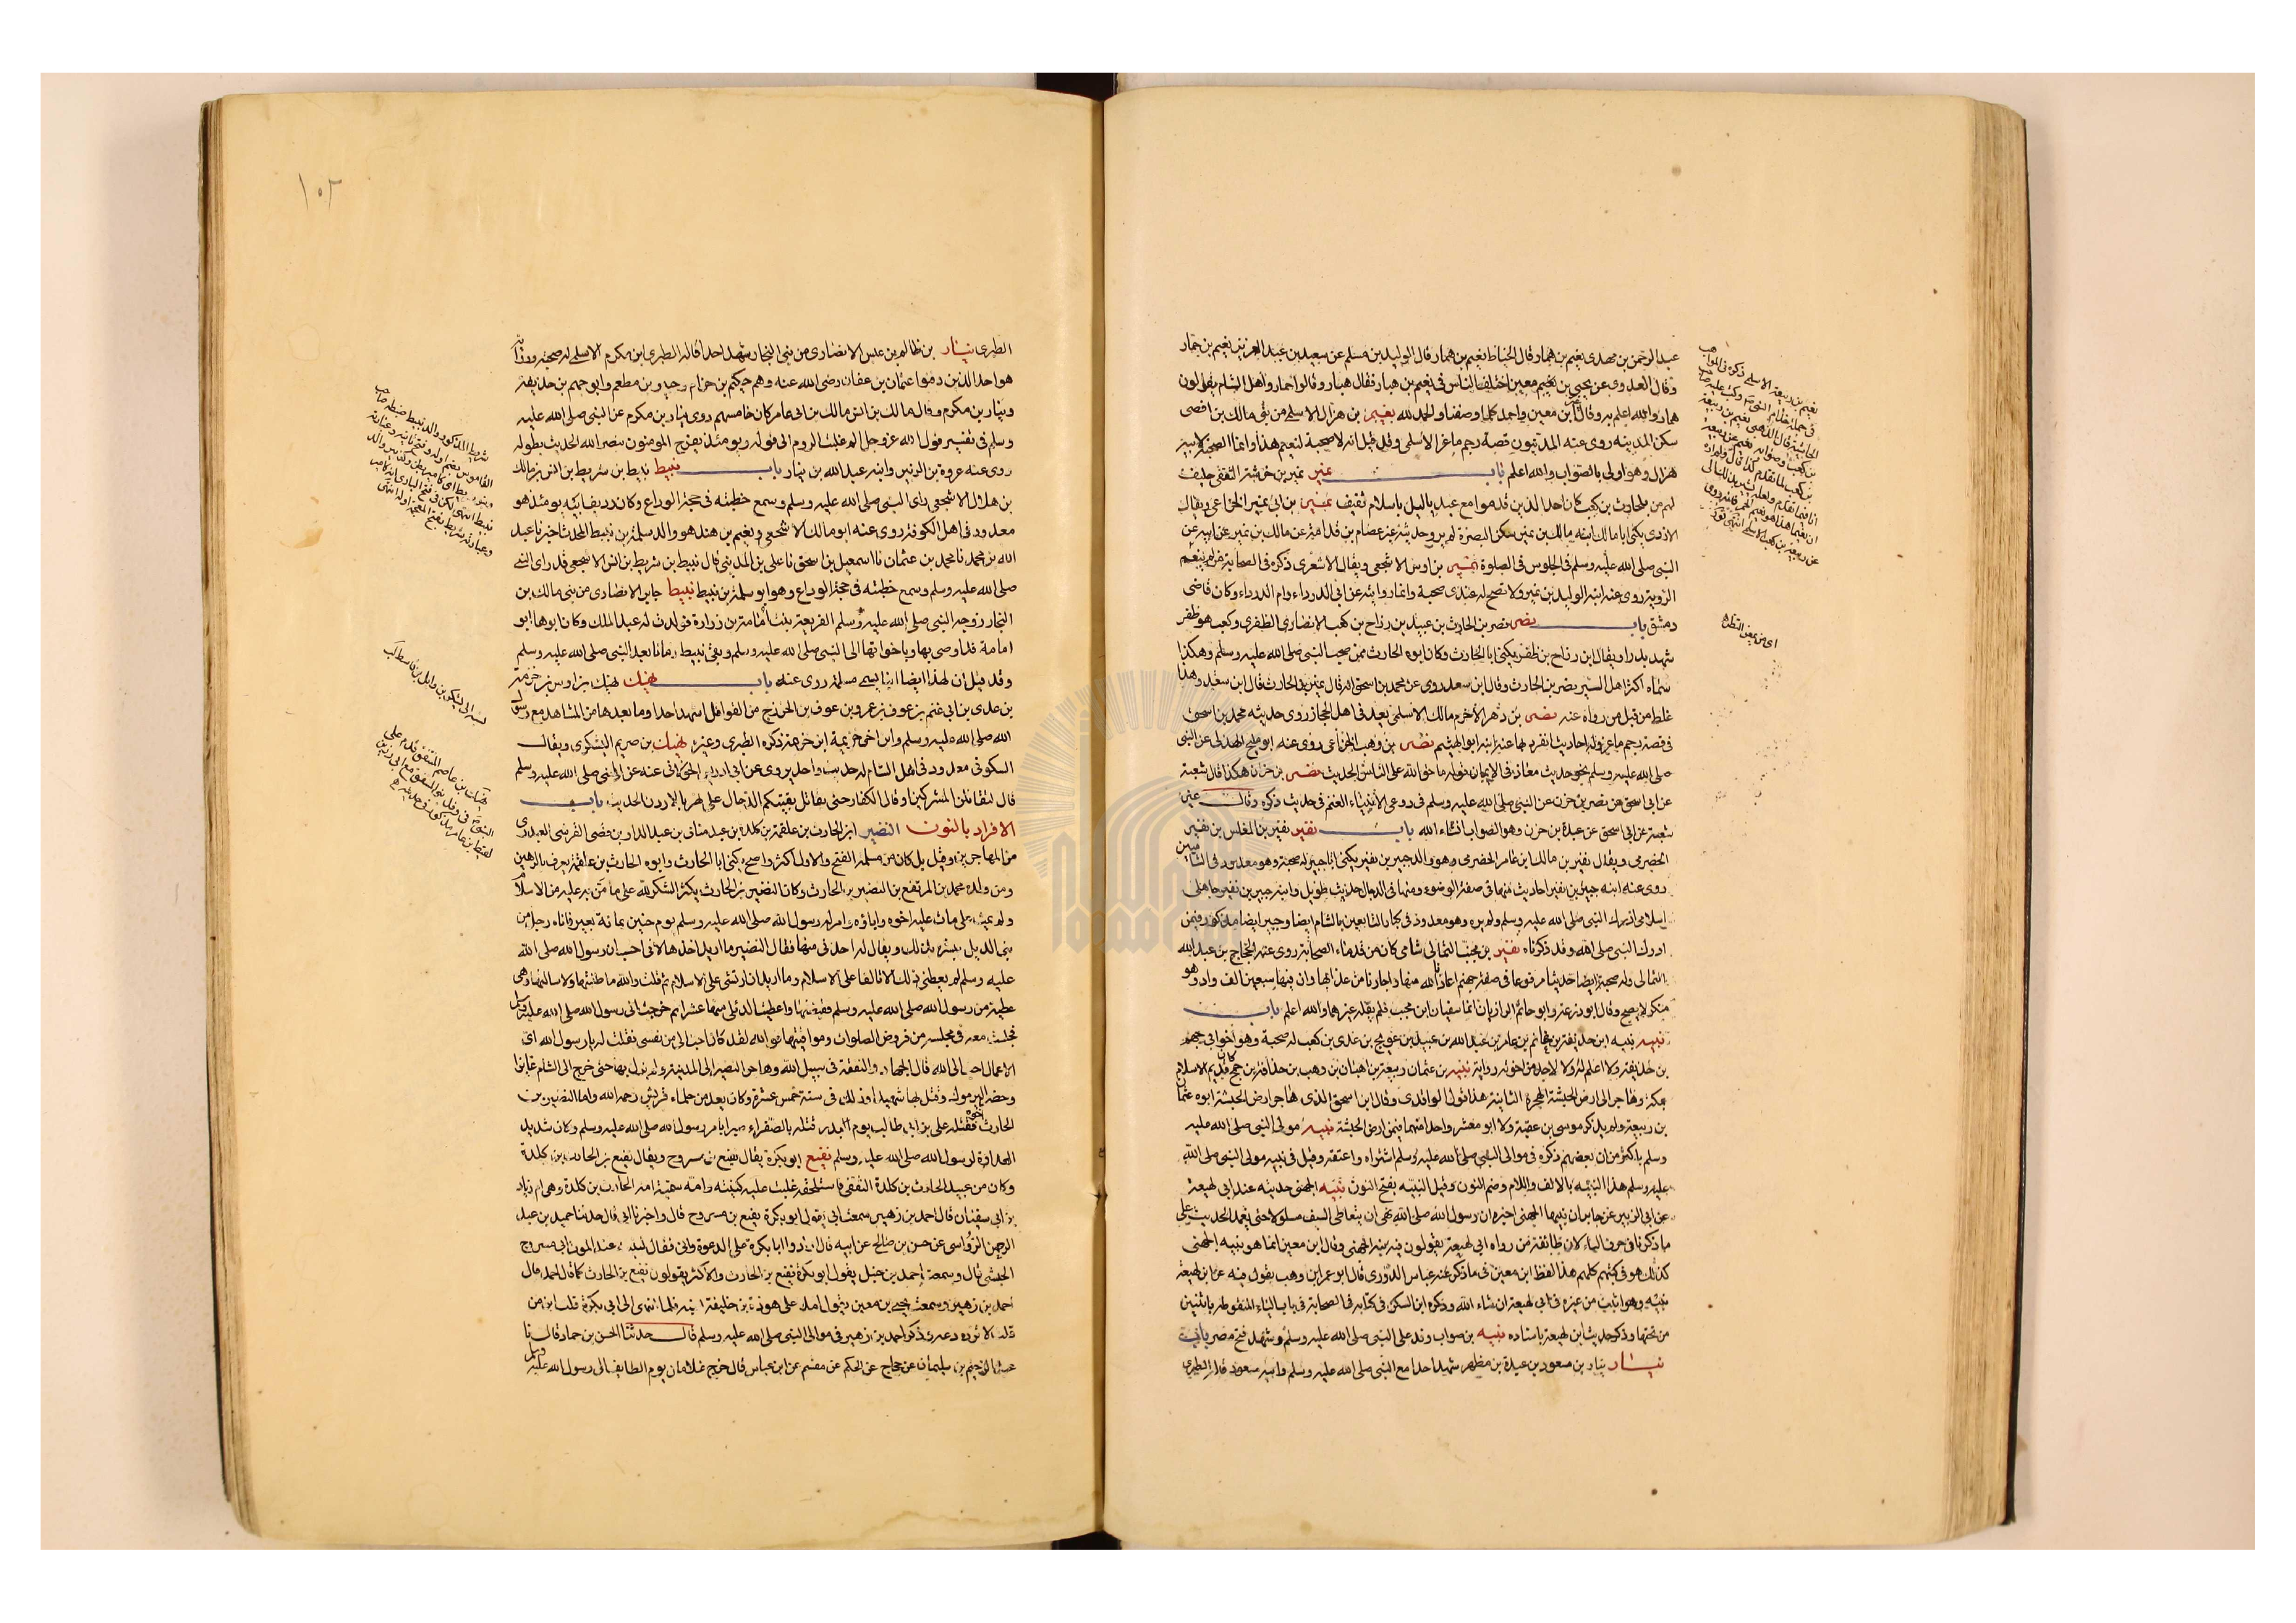 عبد الرحمن بن مهدى نعيم بن همار وقال الخياط نعيم بن همار وقال الوليد بن مسلم عن سعيد بن عبد العزيز نعيم بن حمار
وقال العدوى عن يحيى بن معين اختلف الناس فى نعيم بن هبار فقال هبار وقالوا حمار واهل الشام يقولون
همار والله اعلم نعيم بن هزال الاسلمى من بنى مالك بن افصى
سكن المدينه روى عنه المدنيون قصة رجم ماعز الاسلمى وقد قيل انه لا صحبة لنعيم هذا وانما الصحبة لابيه
هزال وهو اولى بالصواب والله اعلم باب نمير نمير بن خرشة الثقفى حليف
لهم من بلحارث بن كعب كان احد الذين قدموا مع عبد ياليل باسلام ثقيف نمير بن ابى نمير الخزاعى ويقال
الازدى يكنى ابا مالك بابنه مالك بن نمير سكن البصرة لم يرو حديثه غير عصام بن قدامة عن مالك بن نمير عن ابيه عن
النبى صلى الله عليه وسلم فى الجلوس فى الصلوة نمير بن اوس الاشجعى ويقال الاشعرى ذكره فى الصحابة من لم ينعم
الرؤية روى عنه ابنه الوليد بن نمير ولا تصح له عندى صحبة وانما روايته عن ابى الدرداء وام الدرداء وكان قاضى
دمشق باب نصر نصر بن الحارث بن عبيد بن رزاح بن كعب الانصارى الظفرى وكعب هو ظفر
شهد بدرا ويقال ابن رزاح بن ظفر يكنى ابا الحارث وكان ابوه الحارث ممن صحب النبى صلى الله عليه وسلم وهكذا
سماه اكثر اهل السير نصر بن الحارث وقال ابن سعد روى عن محمد بن اسحق انه قال نمير بن الحارث قال ابن سعد وهذا
غلط من قبل من رواه عنه نصر بن دهر الاخرم مالك الاسلمى يعد فى اهل الحجاز روى حديثه محمد بن اسحق
فى قصة رجم ماعز وله احاديث انفرد بها عنه ابنه ابو الهيثم نصر بن وهب الخزاعى روى عنه ابو مليح الهذلى عن النبى
صلى الله عليه وسلم نحو حديث معاذ فى الايمان قوله ما حق الله على الناس الحديث نصر بن حزن هكذا قال شعبة
عن ابى اسحق عن نصر بن حزن عن النبى صلى الله عليه وسلم فى رعى الانبياء الغنم فى حديث ذكره وقال غير
شعبة عن ابى اسحق عن عبدة بن حزن وهو الصواب انشاء الله باب نفير نفير بن المغلس بن نفير
الحضرمى ويقال نفير بن مالك ابن عامر الحضرمى وهو والد جبير بن نفير يكنى ابا جبير له صحبة وهو معدود فى الشاميين
روى عنه ابنه جبير بن نفير احاديث منها فى صفة الوضوء ومنها فى الدجال حديث طويل وابنه جبير بن نفير جاهلى
اسلامى ادرك النبى صلى الله عليه وسلم ولم يره وهو معدود فى كبار التابعين بالشام ايضا وجبير ايضا مذكور فيمن
ادرك النبى صلى الله وقد ذكرناه نفير بن مجيب الثمالى شامى كان من قدماء الصحابة روى عنه الحجاج بن عبد الله
الثمالى وله صحبة ايضا حديثا مرفوعا فى صفة جهنم اعاذنا الله منها واجارنا من عذابها وان فيها سبعين الف واد وهو
منكر لا يصح وقال ابو زرعة وابو حاتم الرازيان انما سفيان ابن مجيب فلم يقله غيرهما والله اعلم باب
نبيه نبيه ابن حذيفة بن غانم بن عامر بن عبد الله بن عبيد بن عويج بن عدى بن كعب له صحبة وهو اخو ابى جهم
بن حذيفة ولا اعلم له ولا لاحد من اخوته رواية نبيه بن عثمان ربيعة بن اهبان بن وهب بن حذافة بن جمح كان قديم الاسلام
بمكة وهاجر الى ارض الحبشة الهجرة الثانية هذا قول الواقدى وقال ابن اسحق الذى هاجر ارض الحبشة ابوه عثمان
بن ربيعة ولم يذكر موسى بن عقبة ولا ابو معشر واحدا منهما فيمن ارض الحبشة نبيه مولى النبى صلى الله عليه
وسلم باكثر من ان بعضهم ذكره فى موالى النبى صلى الله عليه وسلم اشتراه واعتقه وقيل فى نبيه مولى النبى صلى الله
عليه وسلم هذا النبيه بالالف واللام وضم النون وقيل النبيه بفتح النون نبيه الجهنى حديثه عند ابى لهيعة
عن ابى الزبير عن جابر ان نبيها الجهنى اخبره ان رسول الله صلى الله نهى ان يتعاطى السيف مسلولا حتى يغمد الحديث على
ما ذكرنا فى حرف الباء لان طائفة من رواه ابى لهيعة يقولون فيه بنة الجهنى وقال ابن معين انما هو نبيه الجهنى
كذلك هو فى كتبهم كلهم هذا لفظ ابن معين فى ما ذكر عنه عباس الدورى قال ابو عمر ابن وهب يقول فيه عن ابن لهيعة
نبيه وهو اثبت من غيره فى ابى لهيعة ان شاء الله وذكره ابن السكن فى كتابه فى الصحابة فى باب الياء المنقوطة باثنين
من تحتها وذكر حديث ابن لهيعة باسناده نبيه بن صواب وفد على النبى صلى الله عليه وسلم وشهد فتح مصر باب
نيار نيار بن مسعود بن عبدة بن مظهر شهد احدا مع النبى صلى الله عليه وسلم وابنه سعود قاله الطبرى
اى من بعض النظر
١٠٢
الطبرى نيار بن ظالم بن عبس الانصارى من بنى النجار شهد احدا قاله الطبرى ابن مكرم الاسلمى له صحبة ورواية
هو احد الذين دفنوا عثمان بن عفان رضى الله عنه وهم حكيم بن حزام وجبير بن مطعم وابو جهم بن حذيفة
ونيار بن مكرم وقال مالك بن انس مالك بن ابى عامر كان خامسهم روى نيار بن مكرم عن النبى صلى الله عليه
وسلم فى تفسير قول الله عز وجل الم غلبت الروم الى قوله ويومئذ يفرح المومنون بنصر الله الحديث بطوله
روى عنه عروة بن الزبير وابنه عبد الله بن نيار باب نبيط نبيط بن شريط بن انس بن مالك
بن هلال الاشجعى راى النبى صلى الله عليه وسلم وسمع خطبته فى حجة الوداع وكان رديف ابيه يومئذ هو
معدود فى اهل الكوفة روى عنه ابو مالك الاشجعى ونعيم بن هند هو والد سلمة بن نبيط المحدث اخبرنا عبد
الله بن محمد نا محمد بن عثمان نا اسمعيل بن اسحق نا على بن المدينى قال نبيط بن شريط بن انس الاشجعى قد راى النبى
صلى الله عليه وسلم وسمع خطبته فى حجة الوداع وهو ابو سلمة بن نبيط نبيط جابر الانصارى من بنى مالك بن
النجار زوجه النبى صلى الله عليه وسلم الفريعة بنت امامة بن زرارة فولدت له عبد الملك وكان ابوها ابو
امامة قد اوصى بها وباخواتها الى النبى صلى الله عليه وسلم وبقى نبيط زمانا بعد النبى صلى الله عليه وسلم
وقد قيل ان لهذا ايضا ابنا يسمى سلمة روى عنه باب نهيك نهيك بن اوس بن خزمة
بن عدى بن ابى غنم بن عوف بن عمرو بن عوف بن الخزرج من القوافل شهد احدا وما بعدها من المشاهد مع رسول
الله صلى الله عليه وسلم وابن اخى خزيمة ابن خزمة ذكره الطبرى وغيره نهيك بن صريم اليشكرى ويقال
السكونى معدود فى اهل الشام له حديث واحد يروى عن ابى ادريس الخولانى عنه عن النبى صلى الله عليه وسلم
قال لتقاتلن المشركين او قال الكفار حتى يقاتل بقيتكم الدجال على نهر بالاردن الحديث باب
الافراد بالنون النضير ابن الحارث بن علقمة بن كلدة بن عبد مناف بن عبد الدار بن قصى القرشى العبدرى
من المهاجرين وقيل بل كان من مسلمة الفتح والاول اكثر واصح يكنى ابا الحارث وابوه الحارث بن علقمة يعرف بالرهين
ومن ولده محمد بن المرتفع بن النضير بن الحارث وكان النضير بن الحارث يكثر الشكر لله على ما من به عليه من الاسلام
ولم يمت على ما مات عليه اخوه واباؤه وامر له رسول الله صلى الله عليه وسلم يوم حنين بمائة بعير فاتاه رجل من
بنى الديل يبشره بذلك ويقال له احذنى منها فقال النضير ما اريد اخذها لانى احسب ان رسول الله صلى الله
عليه وسلم لم يعطنى ذلك الا تالفا على الاسلام وما اريد ان ارتشى على الاسلام ثم قلت والله ما طلبتها ولا سالتها وهى
عطية من رسول الله صلى الله عليه وسلم فقبضتها واعطيت الدئلى منها عشرا ثم خرجت الى رسول الله صلى الله عليه وسلم
فجلست معه فى مجلسه من فروض الصلوات ومواقيتها فو الله لقد كان احب الى من نفسى فقلت له يا رسول الله اى
الاعمال احب الى الله قال الجهاد والنفقة فى سبيل الله وهاجر النضير الى المدينة ولم يزل بها حتى خرج الى الشام غازيا
وحضر اليرموك وقتل بها شهيدا وذلك فى سنة خمس عشرة وكان يعد من حلماء قريش رحمه الله واما النضر بن
الحارث اخوه فقتله على بن ابى طالب يوم بدر قتله بالصفراء صبرا بامر رسول الله صلى الله عليه وسلم وكان شديد
العداوة لرسول الله صلى الله عليه وسلم نفيع ابو بكرة يقال نفيع بن مسروح ويقال نفيع بن الحارث بن كلدة
وكان من عبيد الحارث بن كلدة الثقفى فاستلحقه غلبت عليه كنيته وامه سمية امة الحارث بن كلدة وهى ام زياد
بن ابى سفيان قال احمد بن زهير سمعت ابى يقول ابو بكرة نفيع بن مسروح قال واخبرنا ابى قال حدثنا حميد بن عبد
الرحمن الرؤاسى عن حسن بن صالح عن ابيه قال ارادوا ابا بكرة على الدعوة وابى فقال لبنيه عند الموت ابى مسروح
الحبشى قال وسمعت احمد بن حنبل يقول ابو بكرة نفيع بن الحارث والاكثر يقولون نفيع بن الحارث كما قال احمد قال
احمد بن زهير وسمعت يحيى بن معين يقول املى على هوذة بن خليفة فلما انتهى الى ابى بكرة قلت ابن من
قال لا تزده دعه وذكر احمد بن زهير فى موالى النبى صلى الله عليه وسلم قال حدثنا الحسن بن حماد قال نا
عبد الرحيم بن سليمان عن حجاج عن الحكم عن مقسم عن ابن عباس قال خرج غلامان يوم الطايف الى رسول الله عليه وسلم